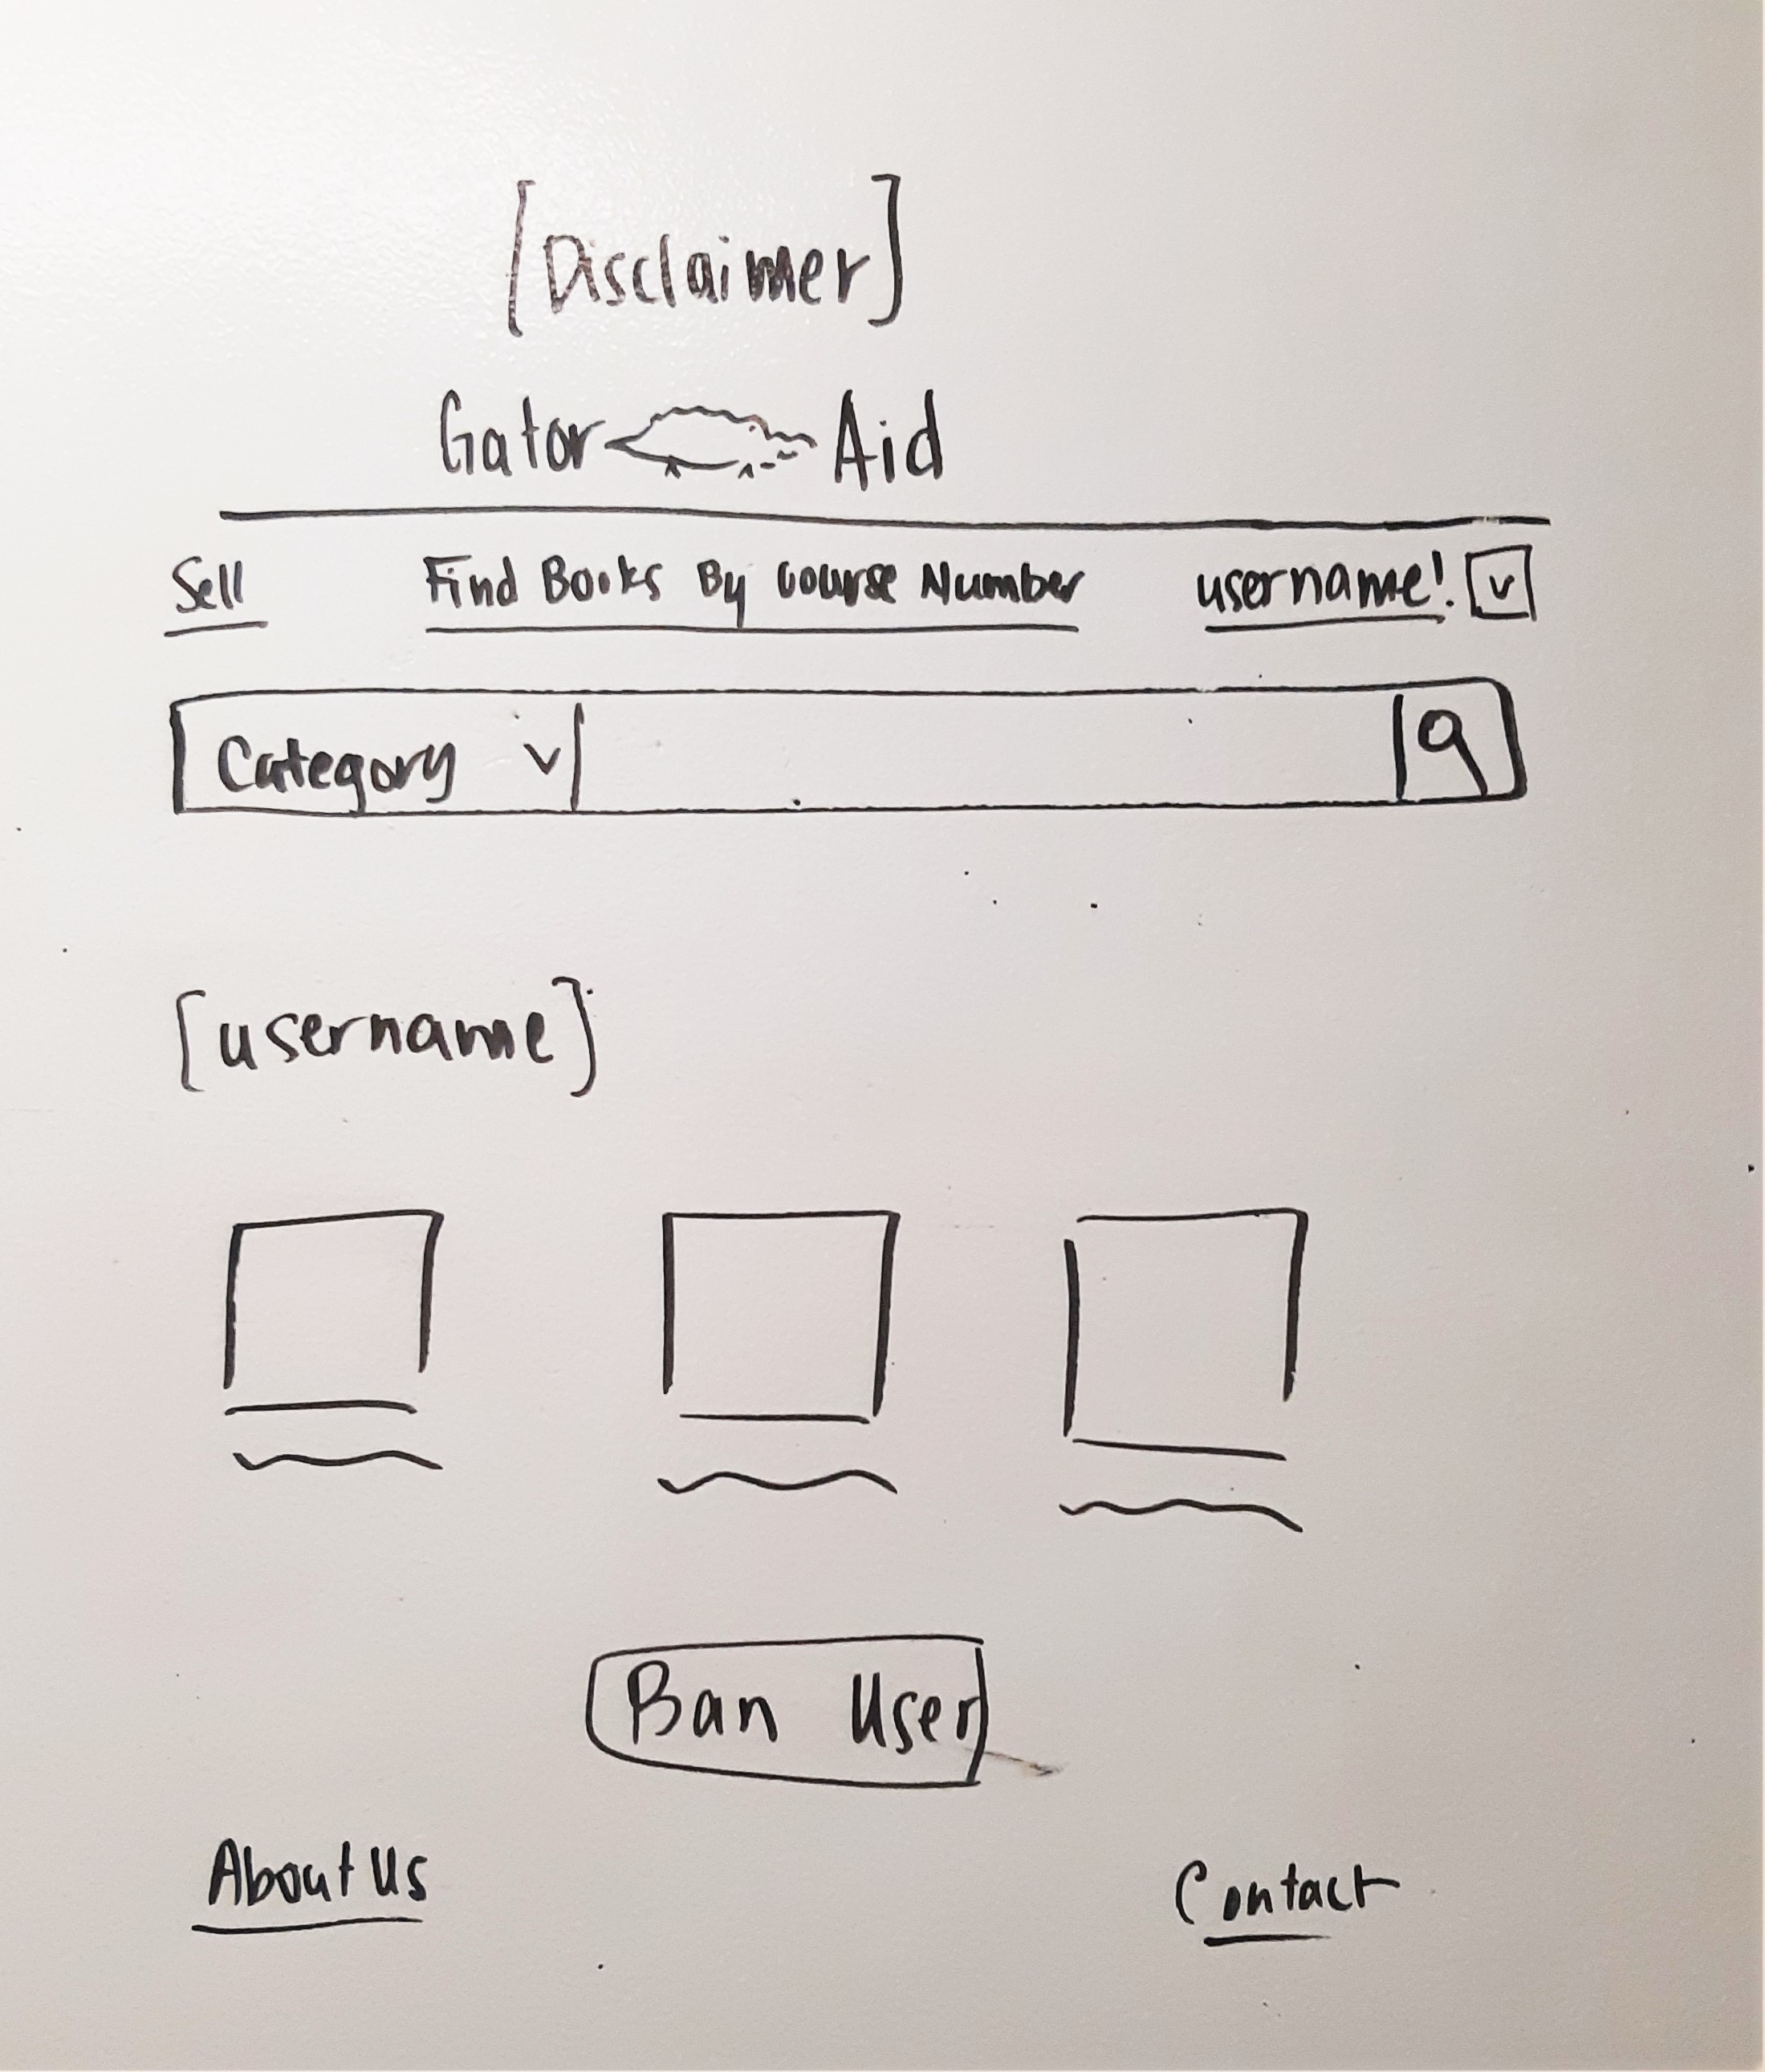 [Disclaimer]
Gator Aid
Sell Find Books By Course Number username! v
Category v
[username]
Ban User
About Us Contact